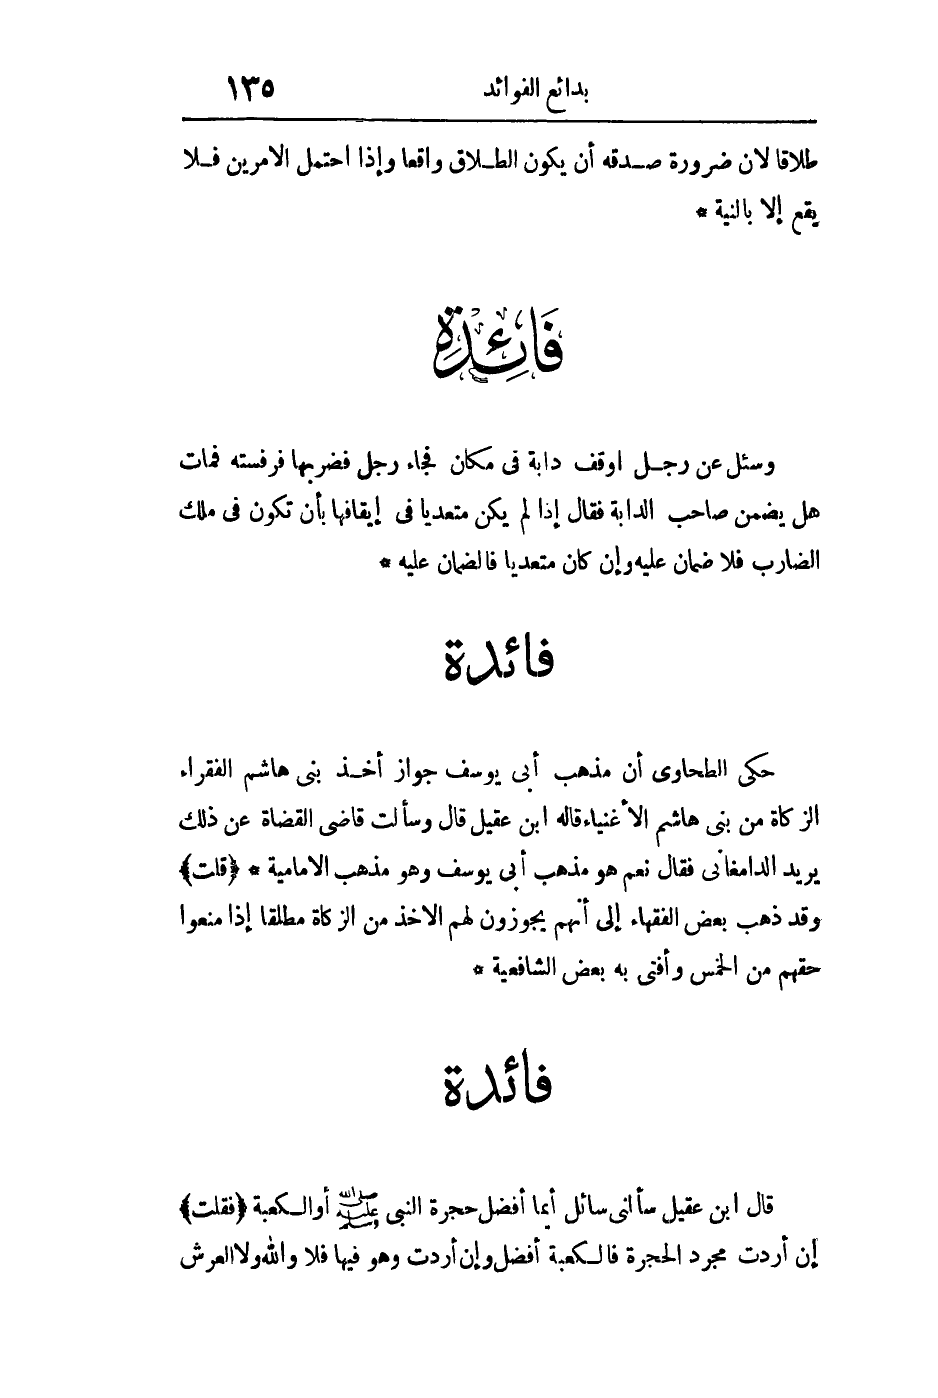 بدائع الفوائد ١٣٥
طلاقا لان ضرورة صـدقه أن يكون الطـلاق واقعا وإذا احتمل الامرين فـلا
يقع إلا بالنية *
فَائِدَة
وسئل عن رجـل اوقف دابة فى مكان فجاء رجل فضربها فرفسته فمات
هل يضمن صاحب الدابة فقال إذا لم يكن متعديا فى إيقافها بأن تكون فى ملك
الضارب فلا ضمان عليه وإن كان متعديا فالضمان عليه *
فائدة
حكى الطحاوى أن مذهب أبى يوسف جواز أخـذ بنى هاشم الفقراء
الزكاة من بنى هاشم الأغنياء قاله ابن عقيل قال وسألت قاضى القضاة عن ذلك
يريد الدامغانى فقال نعم هو مذهب أبى يوسف وهو مذهب الامامية * ﴿قلت﴾
وقد ذهب بعض الفقهاء إلى أنهم يجوزون لهم الاخذ من الزكاة مطلقا إذا منعوا
حقهم من الخمس وأفتى به بعض الشافعية *
فائدة
قال ابن عقيل سألنى سائل أيما أفضل حجرة النبى ﷺ أو الـكعبة ﴿فقلت﴾
إن أردت مجرد الحجرة فالـكعبة أفضل وإن أردت وهو فيها فلا والله ولا العرش